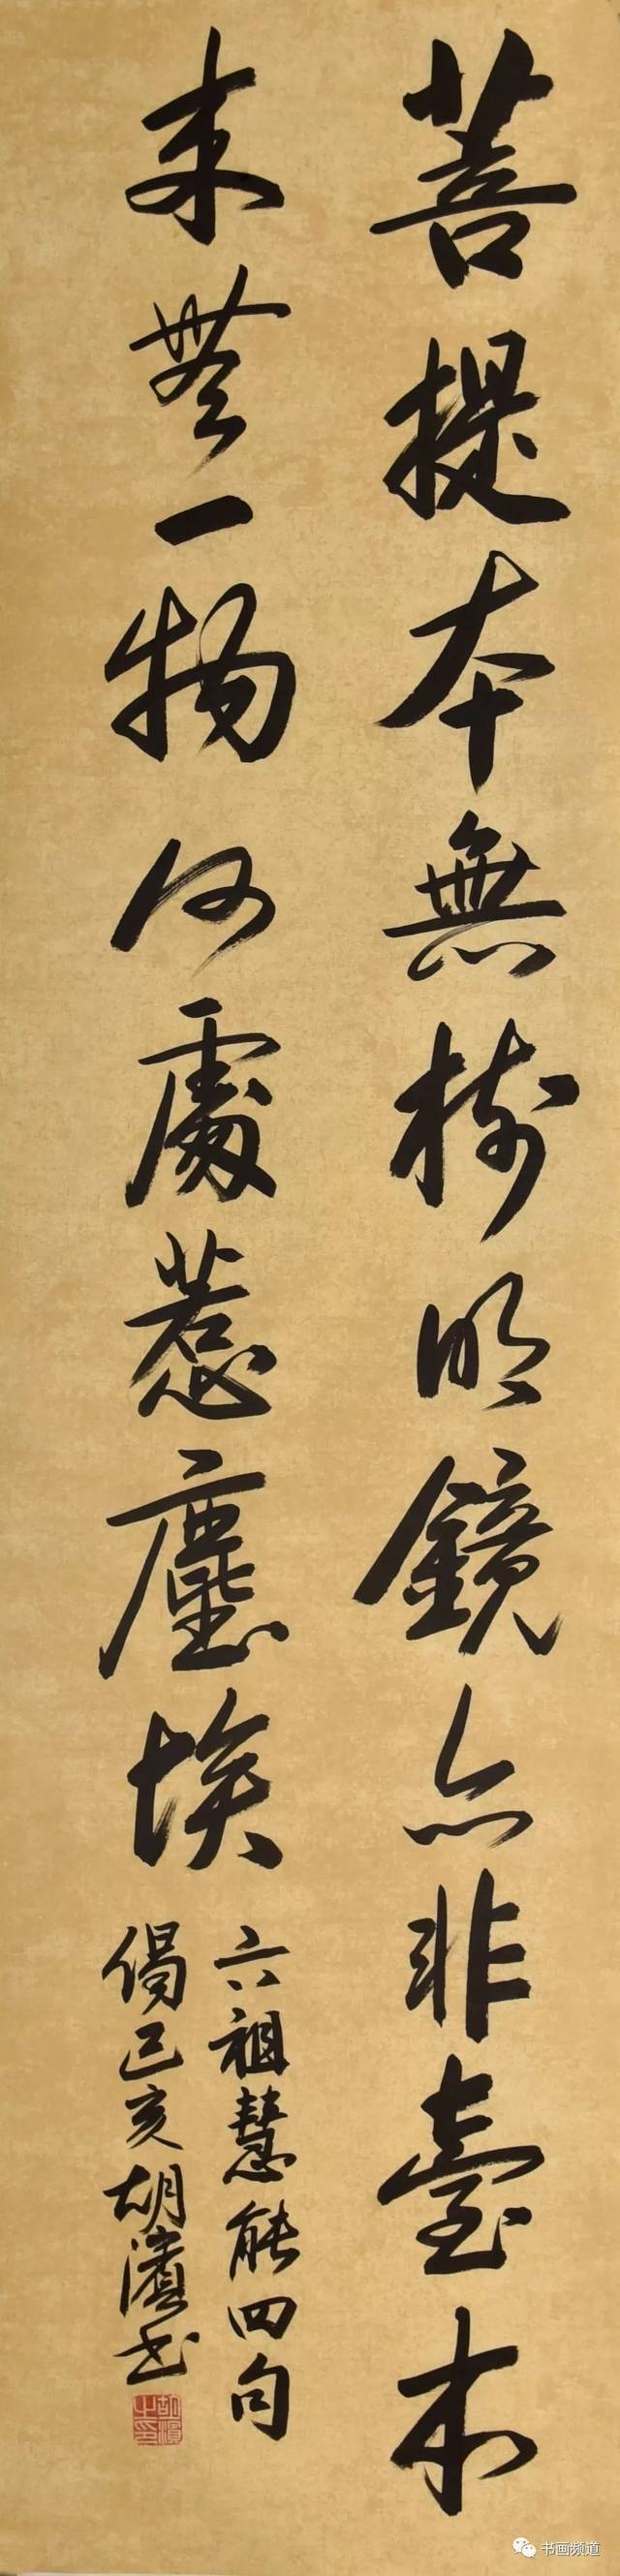 菩提本無樹明鏡亦非臺本
来無一物何處惹塵埃
六祖慧能四句
偈己亥胡濱书
胡濱之印
书画频道